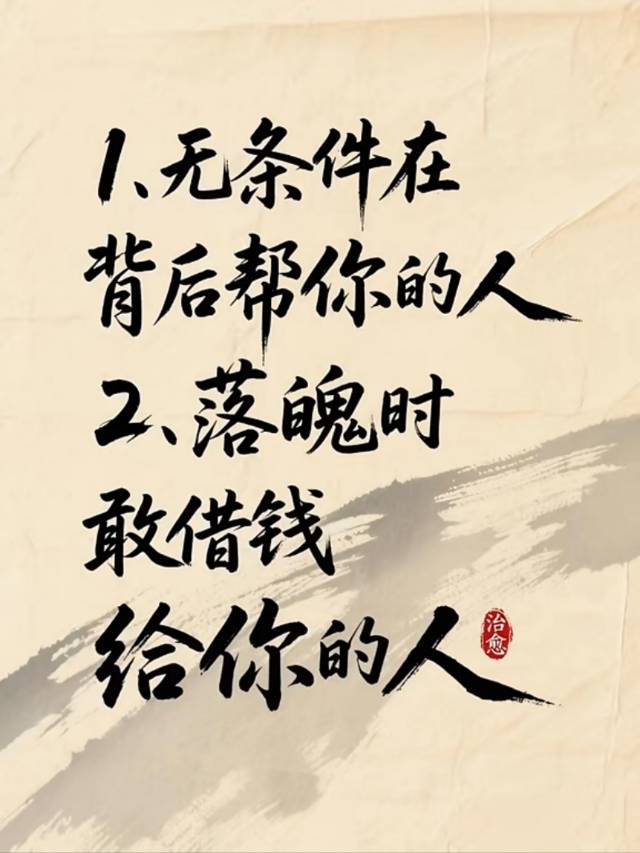 1、无条件在
背后帮你的人
2、落魄时
敢借钱
给你的人
治愈